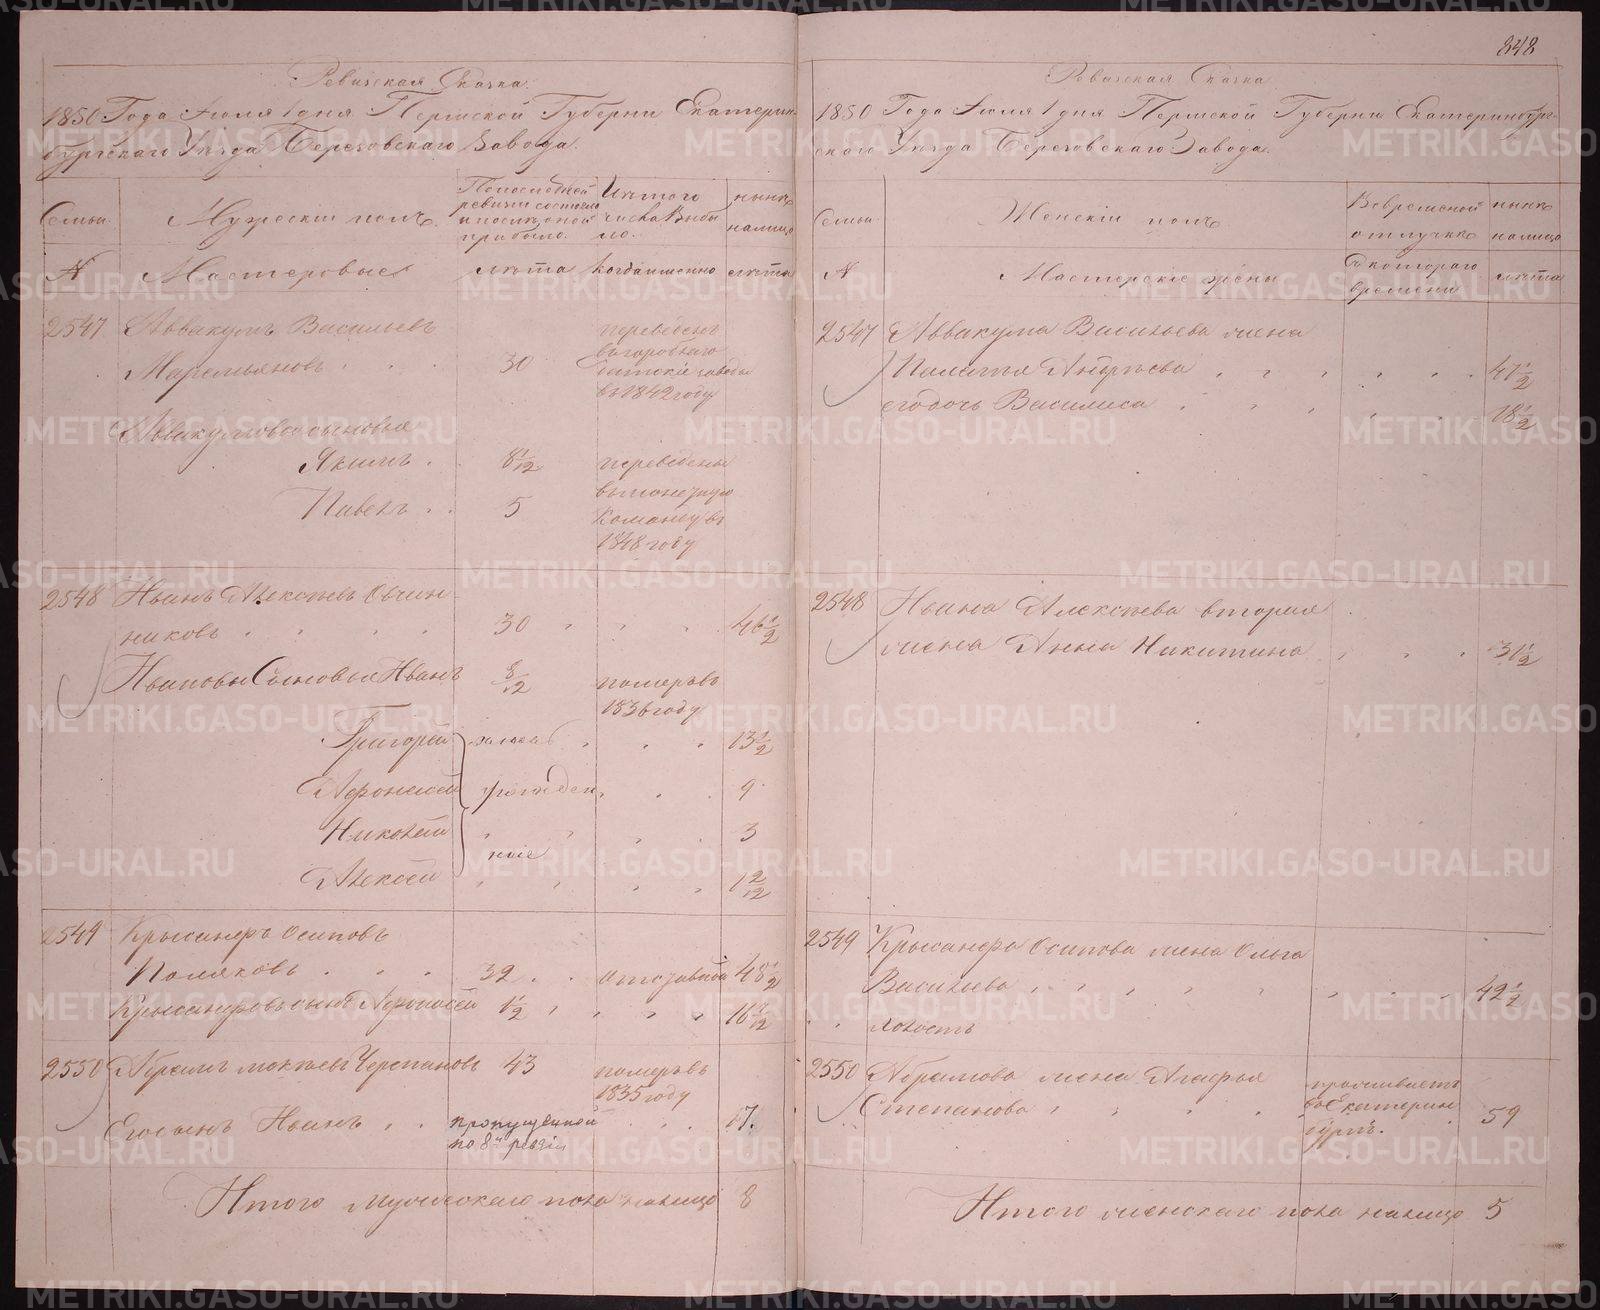 848
Ревизская Сказка
1850 Года Июля 1 дня Пермской Губернии Екатерин-
бургскаго Уезда Березовскаго Завода.
Семьи
Мужескій полъ.
По последней
ревизіи состояло
и после оной
прибыло.
Изъ того
числа выбы
ло.
ныне
налицо
№
Мастеровые
лета
когда именно
лета
2547 Аввакумъ Васильевъ
Маремьяновъ 30
переведенъ
в
заводы
въ 1842 году
Аввакумовы сыновья
Якимъ 8 1/12 переведены
Павелъ 5
в монетную
команду въ
1848 году
2548 Иванъ Алексеевъ Овчин-
никовъ 30 46 1/2
Ивановы Сыновья Иванъ 8/12 померъ въ
1836 году
Григорей после 13 1/2
Афонасей рожден 9
Николай 3
ные
Алексей 1 2/12
2549 Крысанфъ Осиповъ
Поляковъ 32 отставной 48 1/2
Крысанфовъ сынъ Афонасей 1/2 16 7/12
2550 Абрамъ Мокеевъ Черепановъ 43 померъ въ
1835 году
Его сынъ Иванъ пропущенной
по 8й ревизіи 17.
Итого мужескаго пола налицо 8
Ревизская Сказка
1850 Года Июля 1 дня Пермской Губерніи Екатеринбург-
скаго Уезда Березовскаго Завода.
Семьи
Женскій полъ
Во временной
отлучке
ныне
налицо
№
Мастерскіе жены
С котораго
времени
лета
2547 Аввакума Васильева жена
Палагья Андреева 47 1/2
его дочь Василиса 18 1/2
2548 Ивана Алексеева вторая
жена Анна Никитина 31 1/2
2549 Крысанфа Осипова жена Ольга
Васильева 42 1/2
холостъ
2550 Абрамова жена Агафья
Степанова
проживаетъ
въ Екатерин
бурге.
59
Итого женскаго пола налицо 5
METRIKI.GASO-URAL.RU